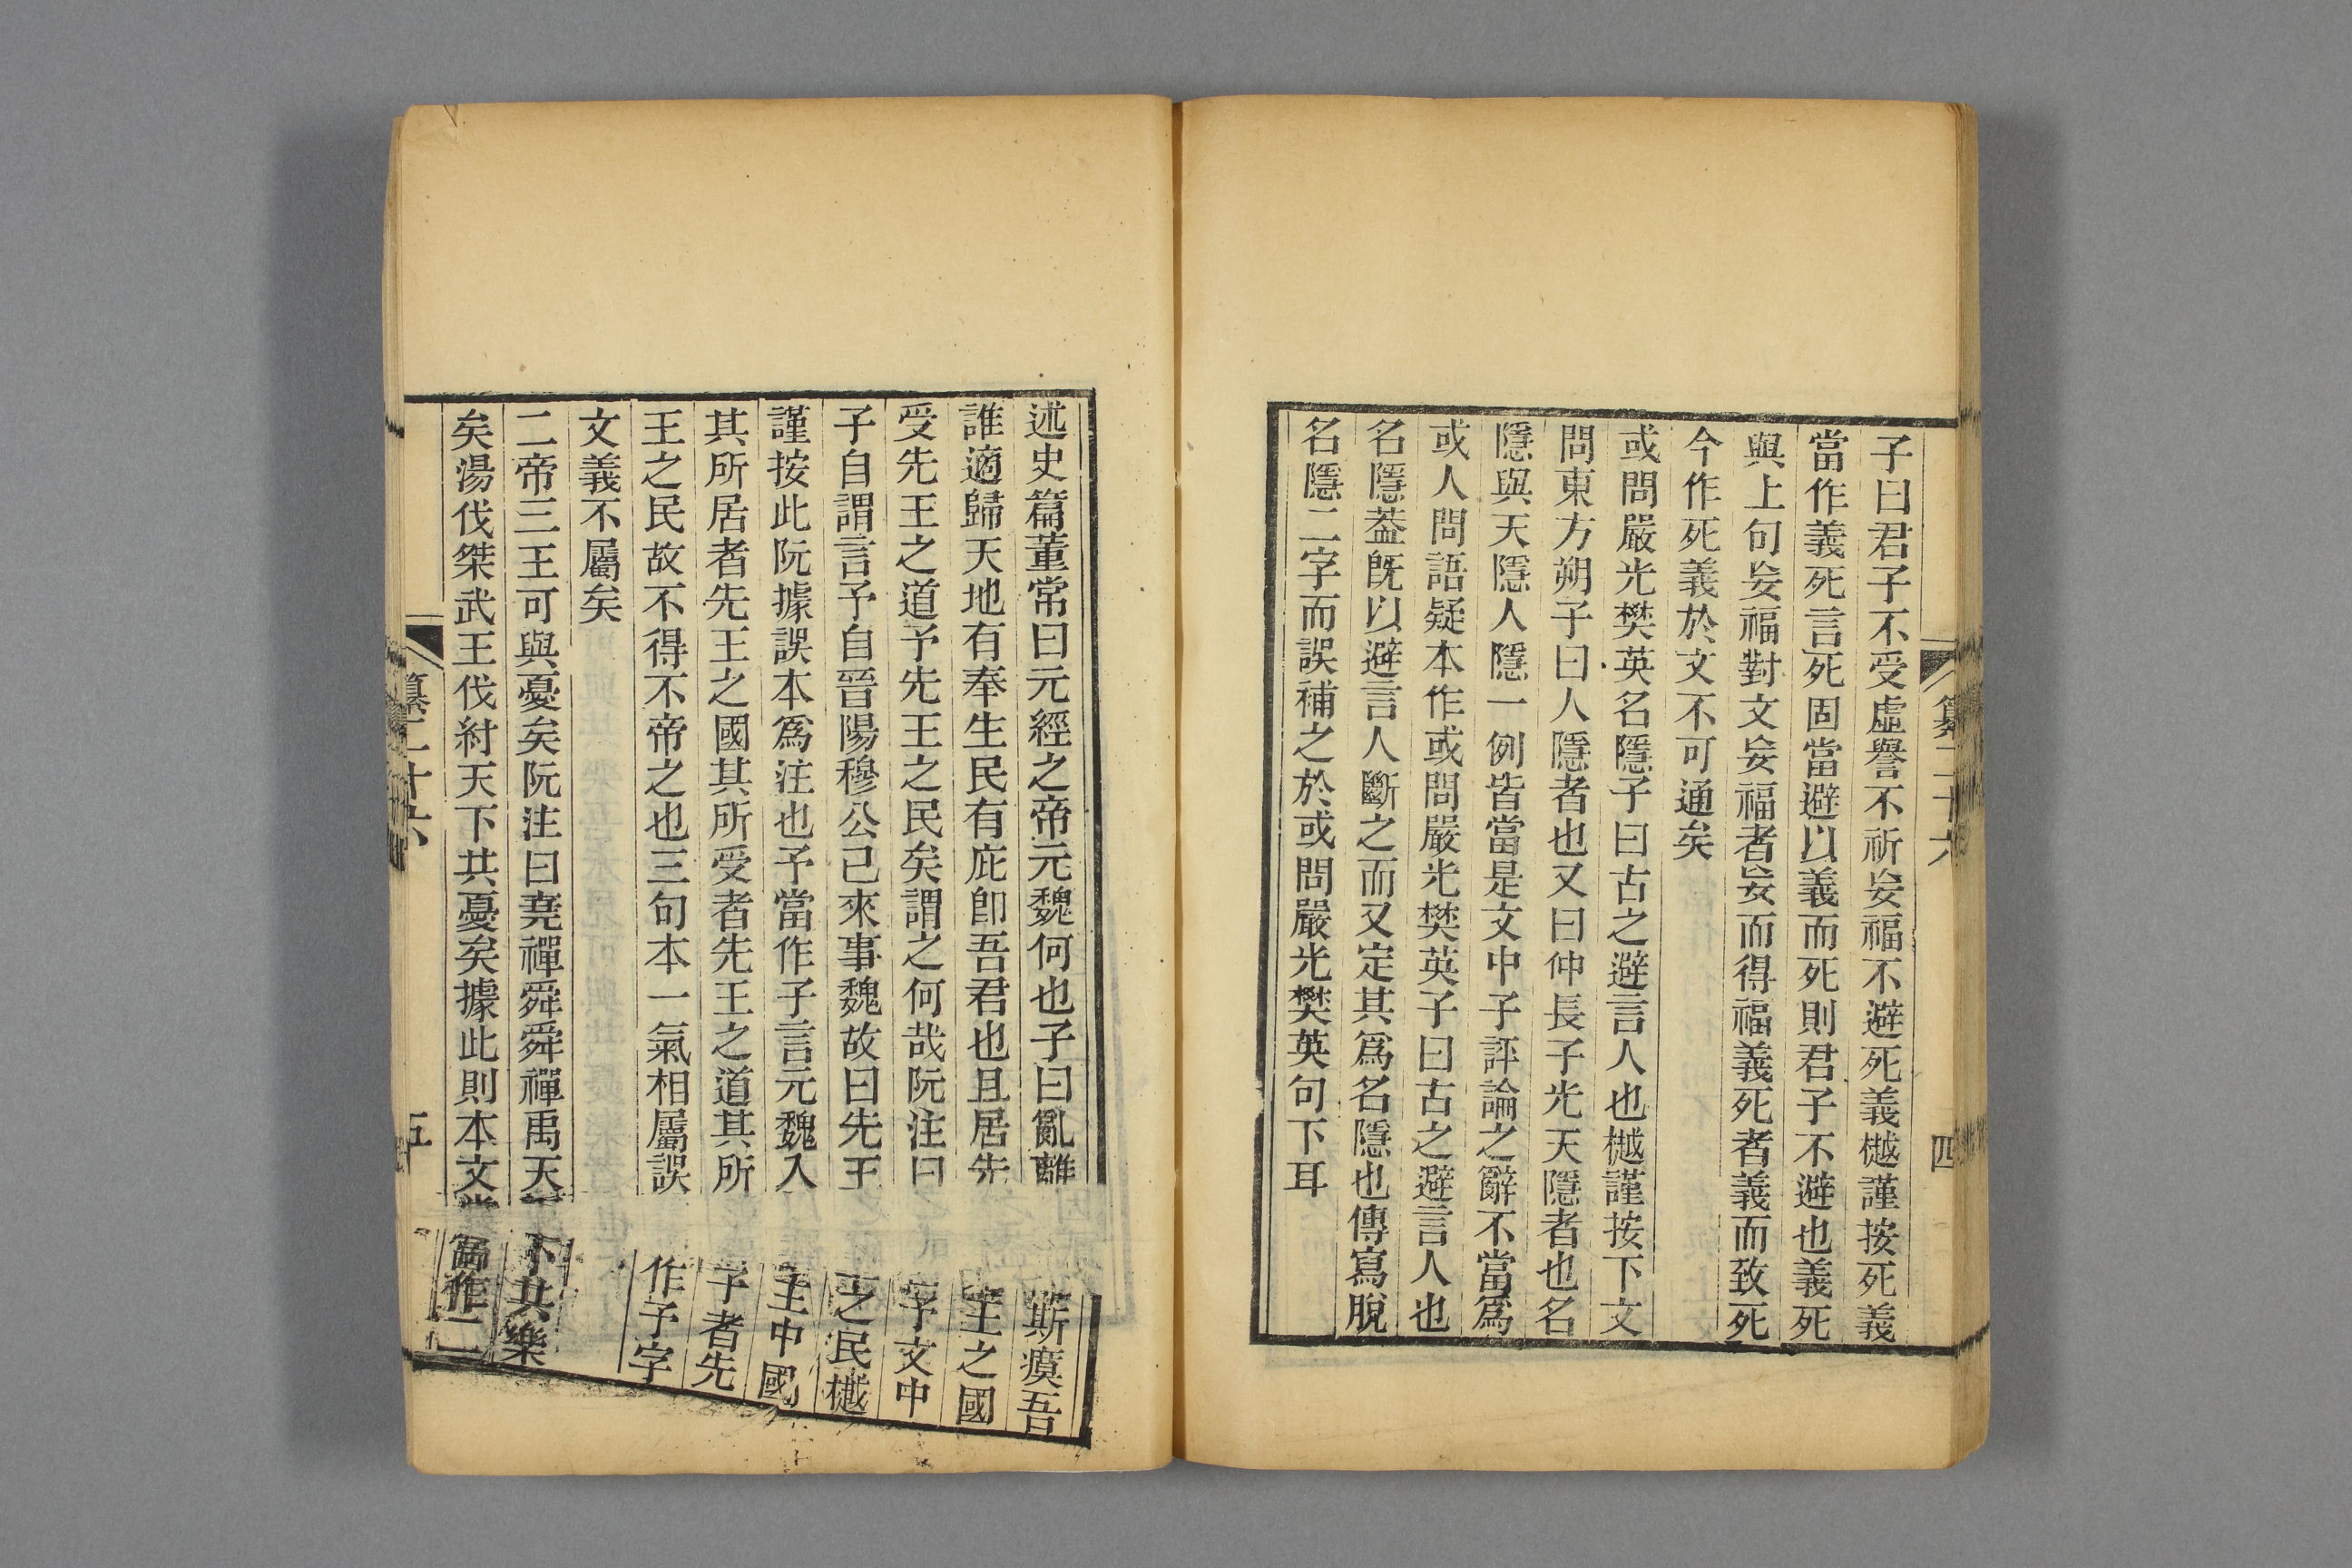 子曰君子不受虛譽不祈妄福不避死義樾謹按死義
當作義死言死固當避以義而死則君子不避也義死
與上句妄福對文妄福者妄而得福義死者義而致死
今作死義於文不可通矣
或問嚴光樊英名隱子曰古之避言人也樾謹按下文
問東方朔子曰人隱者也又曰仲長子光天隱者也名
隱與天隱人隱一例皆當是文中子評論之辭不當爲
或人問語疑本作或問嚴光樊英子曰古之避言人也
名隱葢旣以避言人斷之而又定其爲名隱也傳寫脫
名隱二字而誤補之於或問嚴光樊英句下耳
纂二十六
四
述史篇董常曰元經之帝元魏何也子曰亂離斯瘼吾
誰適歸天地有奉生民有庇卽吾君也且居先王之國
受先王之道予先王之民矣謂之何哉阮注曰字文中
子自謂言予自晉陽穆公己來事魏故曰先王之民樾
謹按此阮據誤本爲注也予當作子言元魏入主中國
其所居者先王之國其所受者先王之道其所子者先
王之民故不得不帝之也三句本一氣相屬誤作予字
文義不屬矣
二帝三王可與憂矣阮注曰堯禪舜舜禪禹天下共樂
矣湯伐桀武王伐紂天下共憂矣據此則本文當作二
纂二十六
五